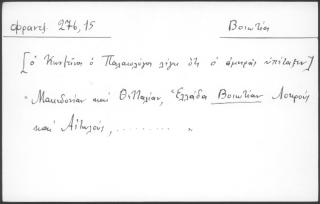 Φραντζ. 276, 15 Βοιωτία
[ὁ Κων/τῖνος ὁ Παλαιολόγος λέγει ὅτι ὁ ἀμηρᾶς ὑπέταξεν]
"Μακεδονίαν καὶ Θετταλίαν, Ἑλλάδα Βοιωτίαν Λοκροὺς
καὶ Αἰτωλούς, ......... "